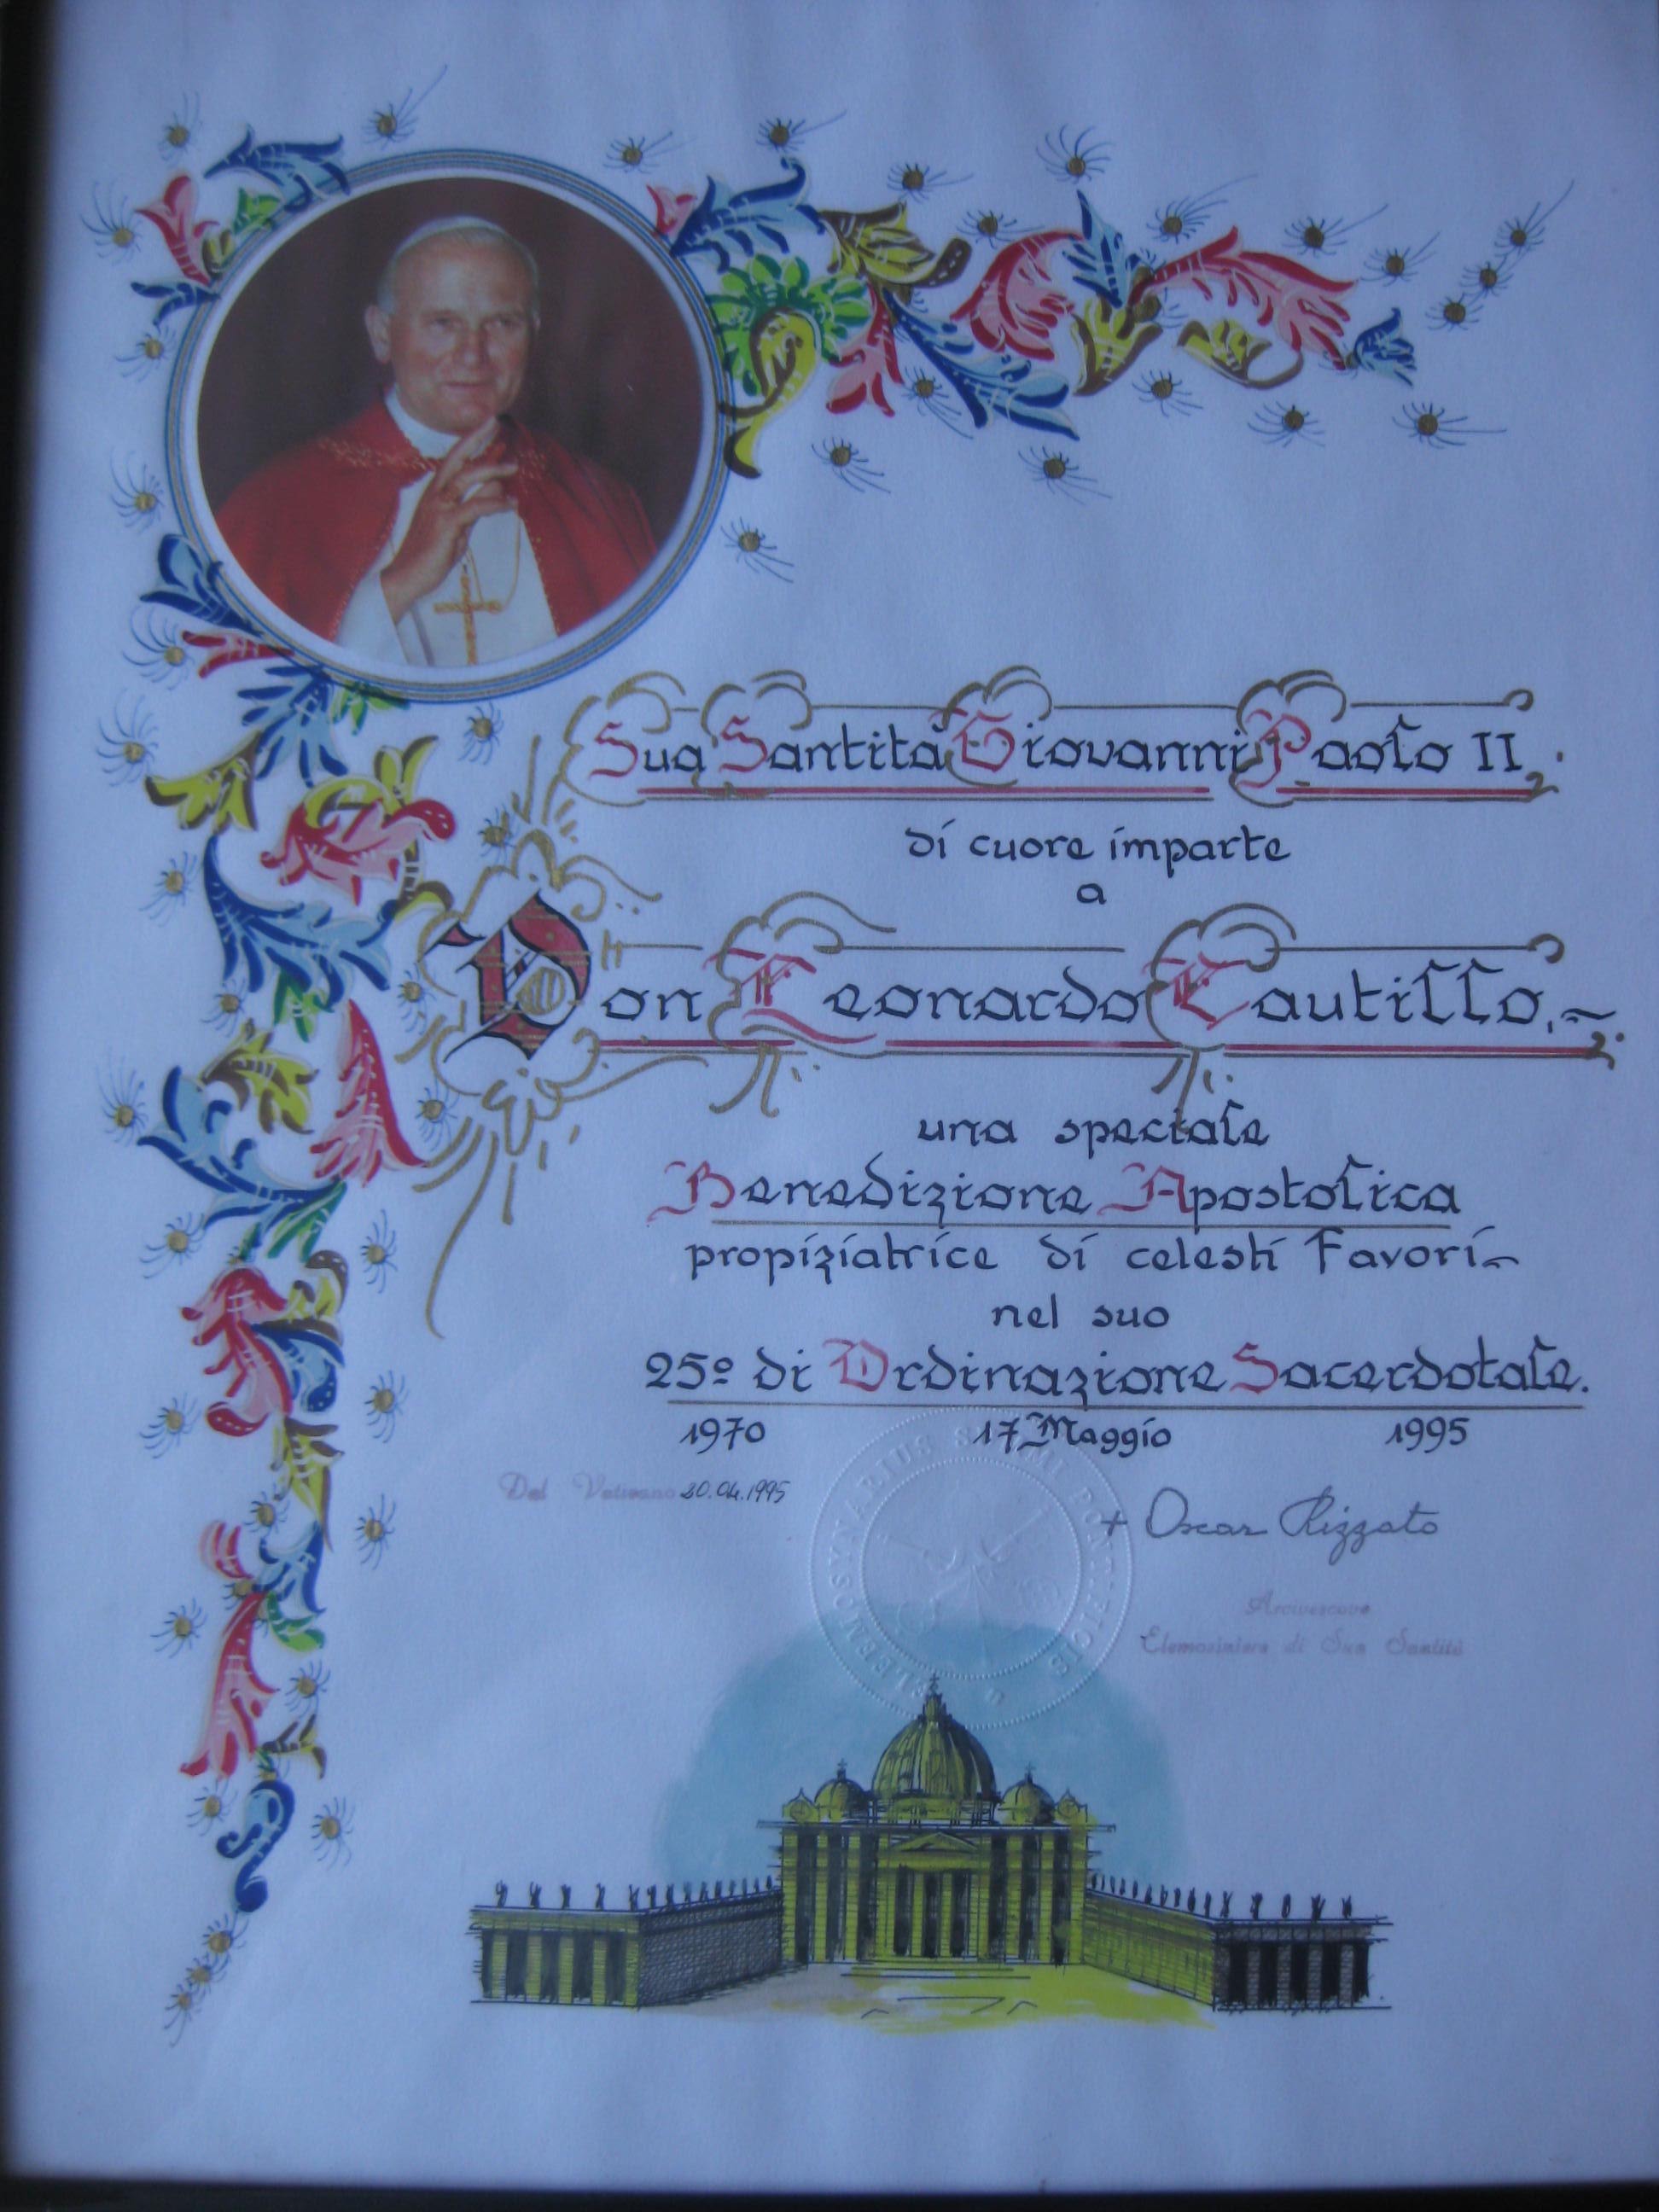 Sua Santità Giovanni Paolo II.
di cuore imparte
a
Don Leonardo Cautillo.
una speciale
Benedizione Apostolica
propiziatrice di celesti Favori
nel suo
25º di Ordinazione Sacerdotale.
1970 17 Maggio 1995
Dal Vaticano 20.04.1995
+ Oscar Rizzato
Arcivescovo
Elemosiniere di Sua Santità
ELEEMOSYNARIUS SUMMI PONTIFICIS